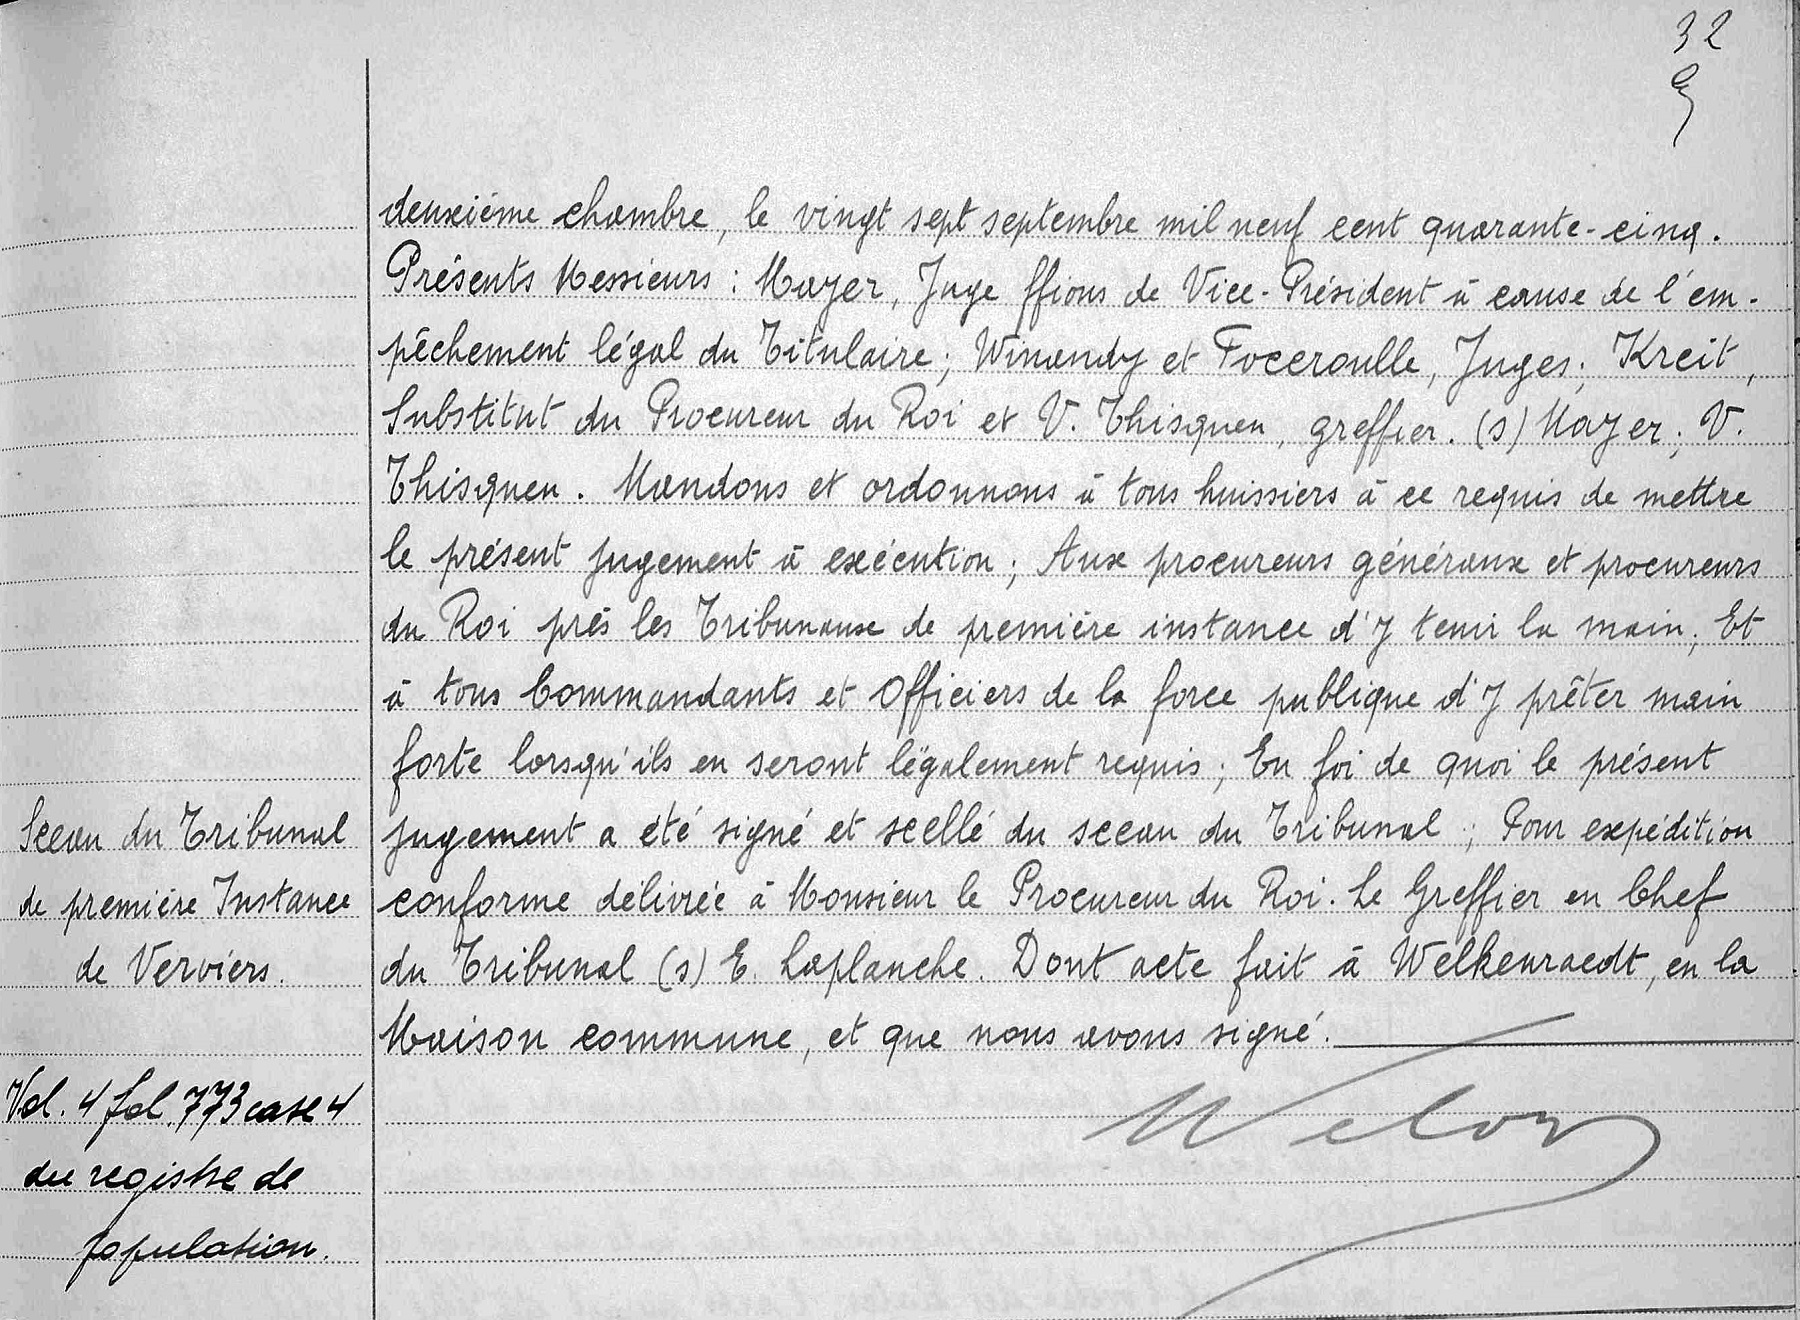 32
deuxième chambre, le vingt sept septembre mil neuf cent quarante-cinq.
Présents Messieurs : Mayer, Juge ffions de Vice-Président à cause de l'em-
pêchement légal du Titulaire; Winandy et Focceroulle, Juges; Kreit,
Substitut du Procureur du Roi et V. Thisquen, greffier. (s) Mayer; V.
Thisquen. Mandons et ordonnons à tous huissiers à ce requis de mettre
le présent jugement à exécution; Aux procureurs généraux et procureurs
du Roi près les Tribunaux de première instance d'y tenir la main; Et
à tous Commandants et Officiers de la force publique d'y prêter main
forte lorsqu'ils en seront légalement requis; En foi de quoi le présent
jugement a été signé et scellé du sceau du Tribunal; Pour expédition
conforme délivrée à Monsieur le Procureur du Roi. Le Greffier en Chef
du Tribunal (s) E. Laplanche. Dont acte fait à Welkenraedt, en la
Maison commune, et que nous avons signé.
Sceau du Tribunal
de première Instance
de Verviers.
Vol. 4 fol. 773 case 4
du registre de
population.